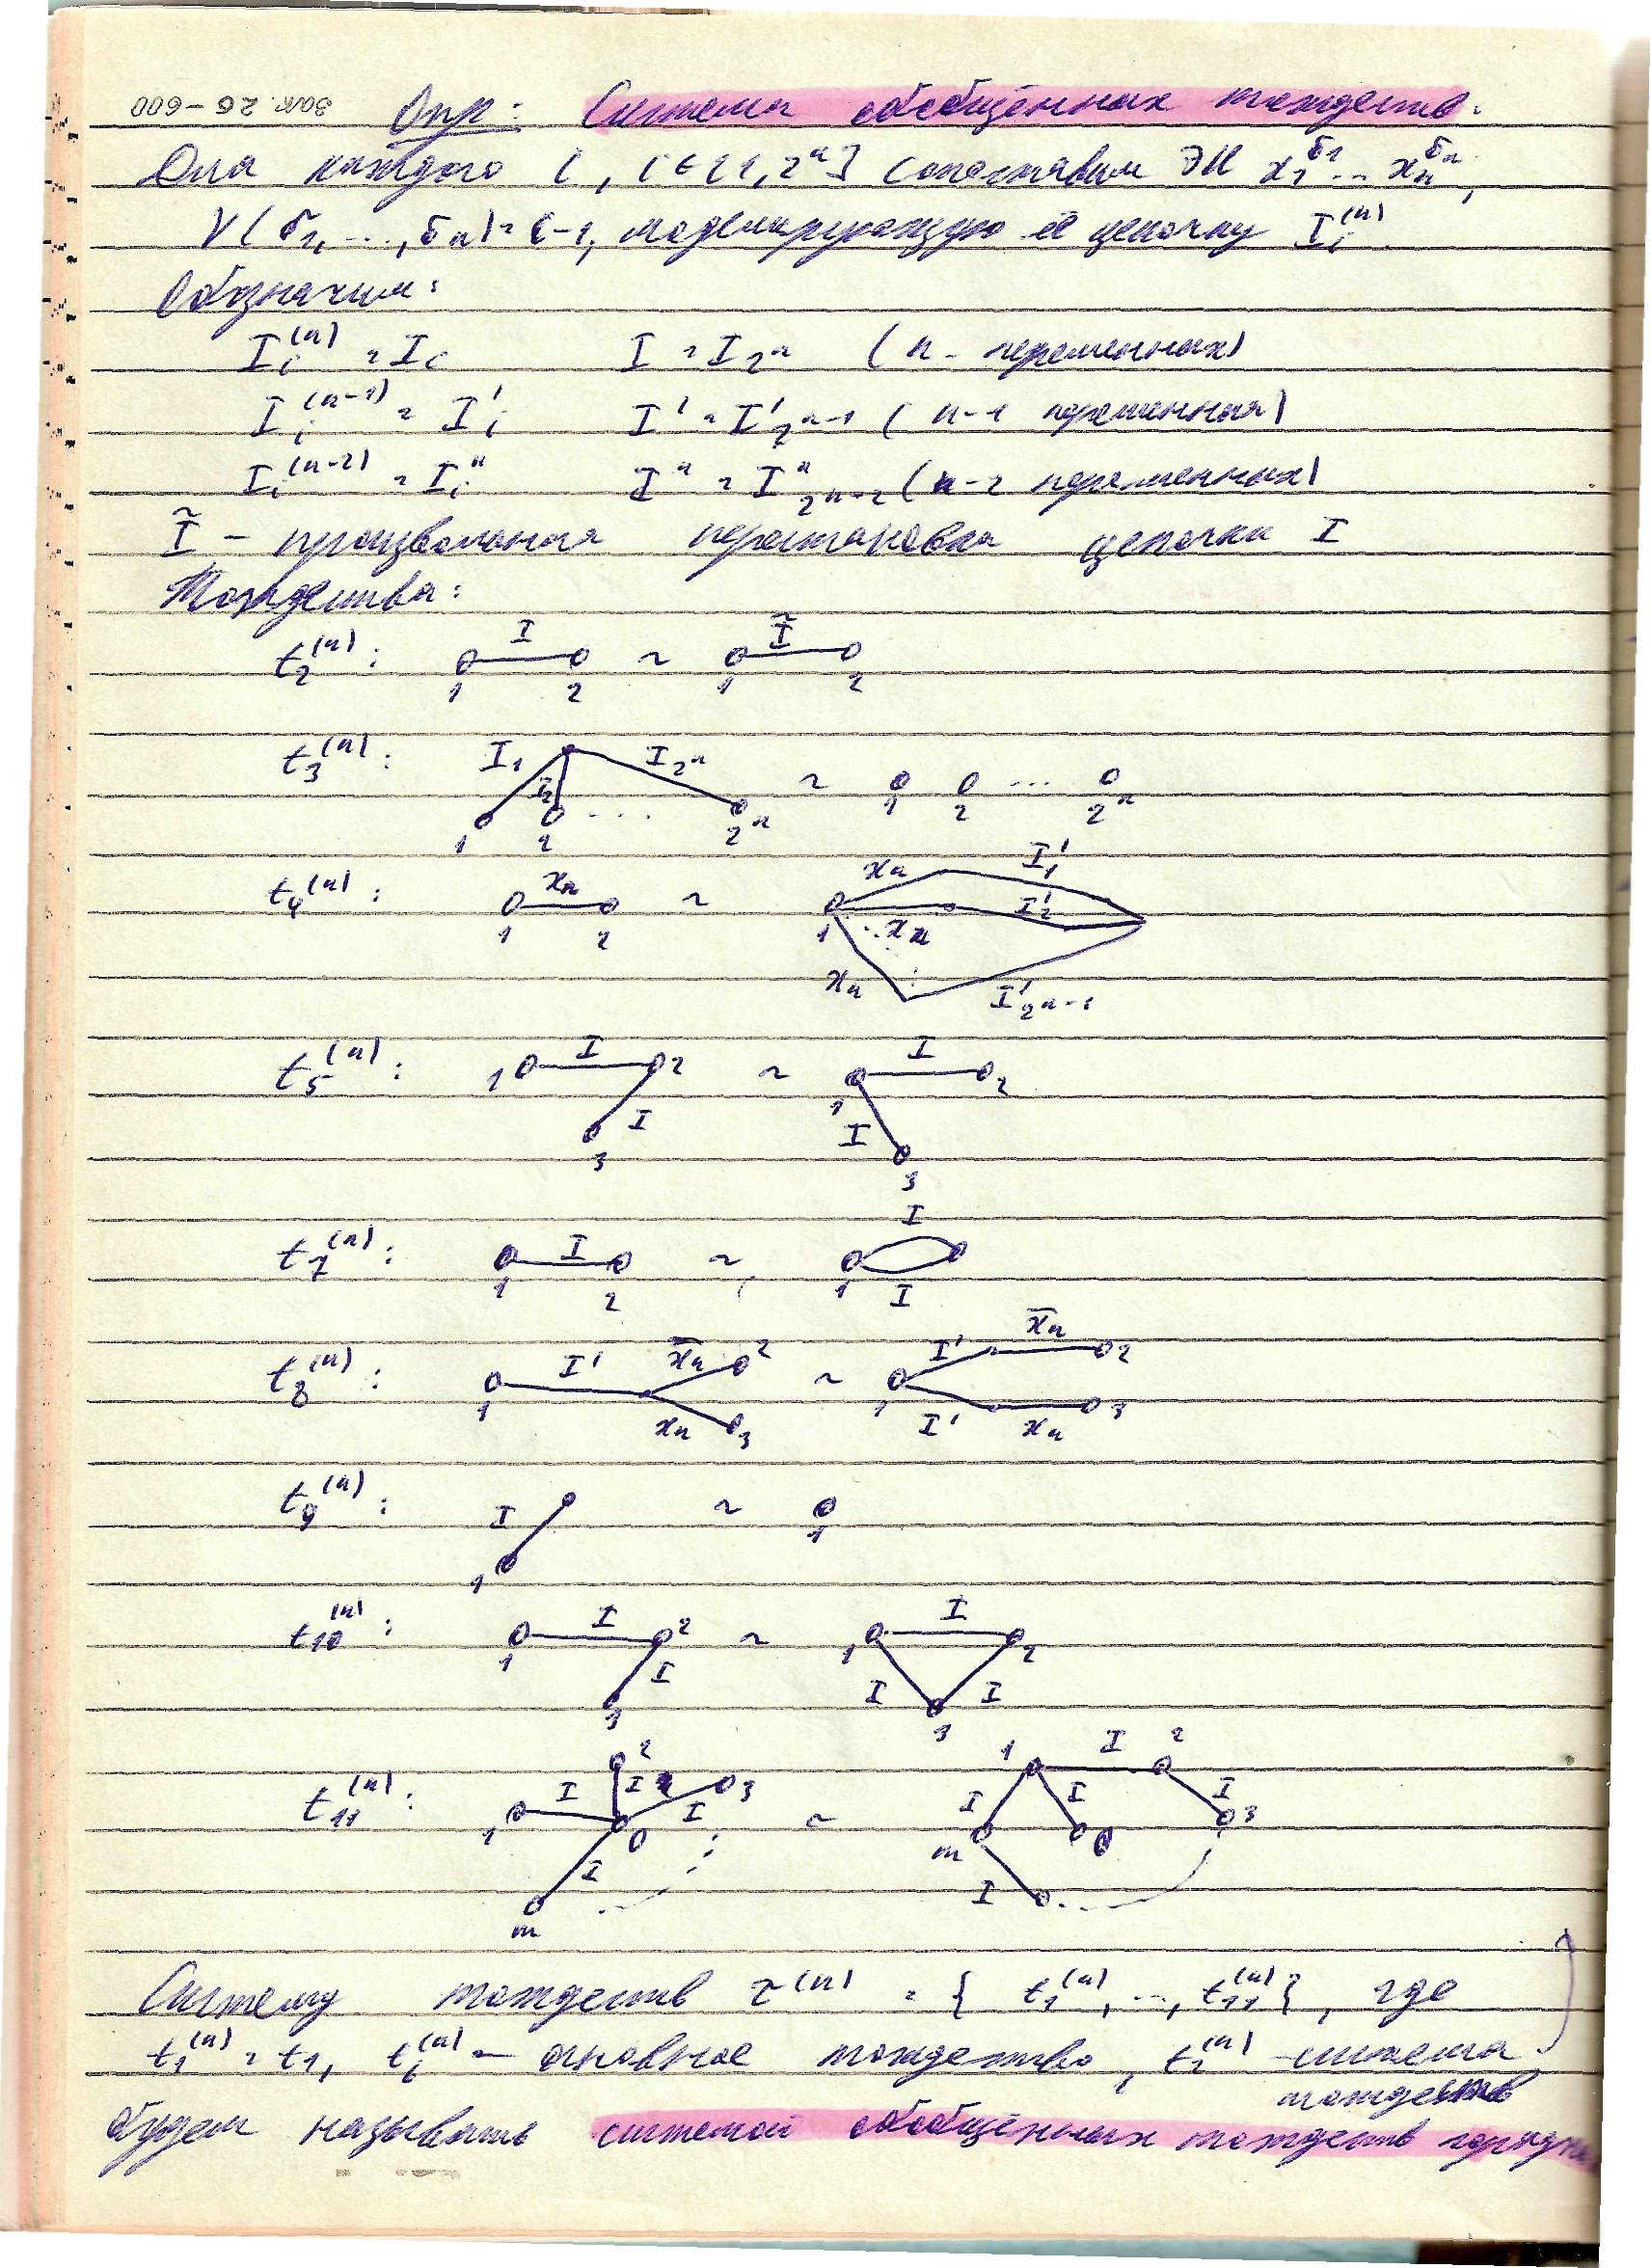 Зак. 26-600
Опр: Система обобщённых тождеств.
Для каждого i, i ∈ [1, 2ⁿ] сопоставим ЭК x₁^σ₁ ... xₙ^σₙ,
ν(σ₁, ..., σₙ) = i-1, моделирующую её цепочку Iᵢ⁽ⁿ⁾.
Обозначим:
Iᵢ⁽ⁿ⁾ = Iᵢ I = I_2ⁿ (n - переменных)
Iᵢ⁽ⁿ⁻¹⁾ = I'ᵢ I' = I'_2ⁿ⁻¹ (n-1 переменная)
Iᵢ⁽ⁿ⁻²⁾ = I"ᵢ I" = I"_2ⁿ⁻² (n-2 переменных)
Ĩ - произвольная перестановка цепочки I
Тождества:
t₂⁽ⁿ⁾: I ~ Ĩ
1 2 1 2
t₃⁽ⁿ⁾: I₁ I₂ I_2ⁿ ~ 1 2 ... 2ⁿ
1 2 ... 2ⁿ
t₄⁽ⁿ⁾: xₙ ~ xₙ I'₁
1 2 1 xₙ I'₂
xₙ I'_2ⁿ⁻¹
t₅⁽ⁿ⁾: 1 I 2 ~ I 2
I 1 I
3 3
t₇⁽ⁿ⁾: I ~ I
1 2 1 I
t₈⁽ⁿ⁾: I' x̄ₙ 2 ~ I' x̄ₙ 2
1 xₙ 3 1 I' xₙ 3
t₉⁽ⁿ⁾: I ~
1 1
t₁₀⁽ⁿ⁾: I 2 ~ I
1 I 1 2
3 I I
3
t₁₁⁽ⁿ⁾: I 2 I I 3 ~ 1 I 2
1 0 I I I 3
I m 0
m I
Систему тождеств τ⁽ⁿ⁾ = { t₁⁽ⁿ⁾, ..., t₁₁⁽ⁿ⁾}, где
t₁⁽ⁿ⁾ = t₁, tᵢ⁽ⁿ⁾ - основное тождество, t₂⁽ⁿ⁾ - система
тождеств
будем называть системой обобщённых тождеств порядка